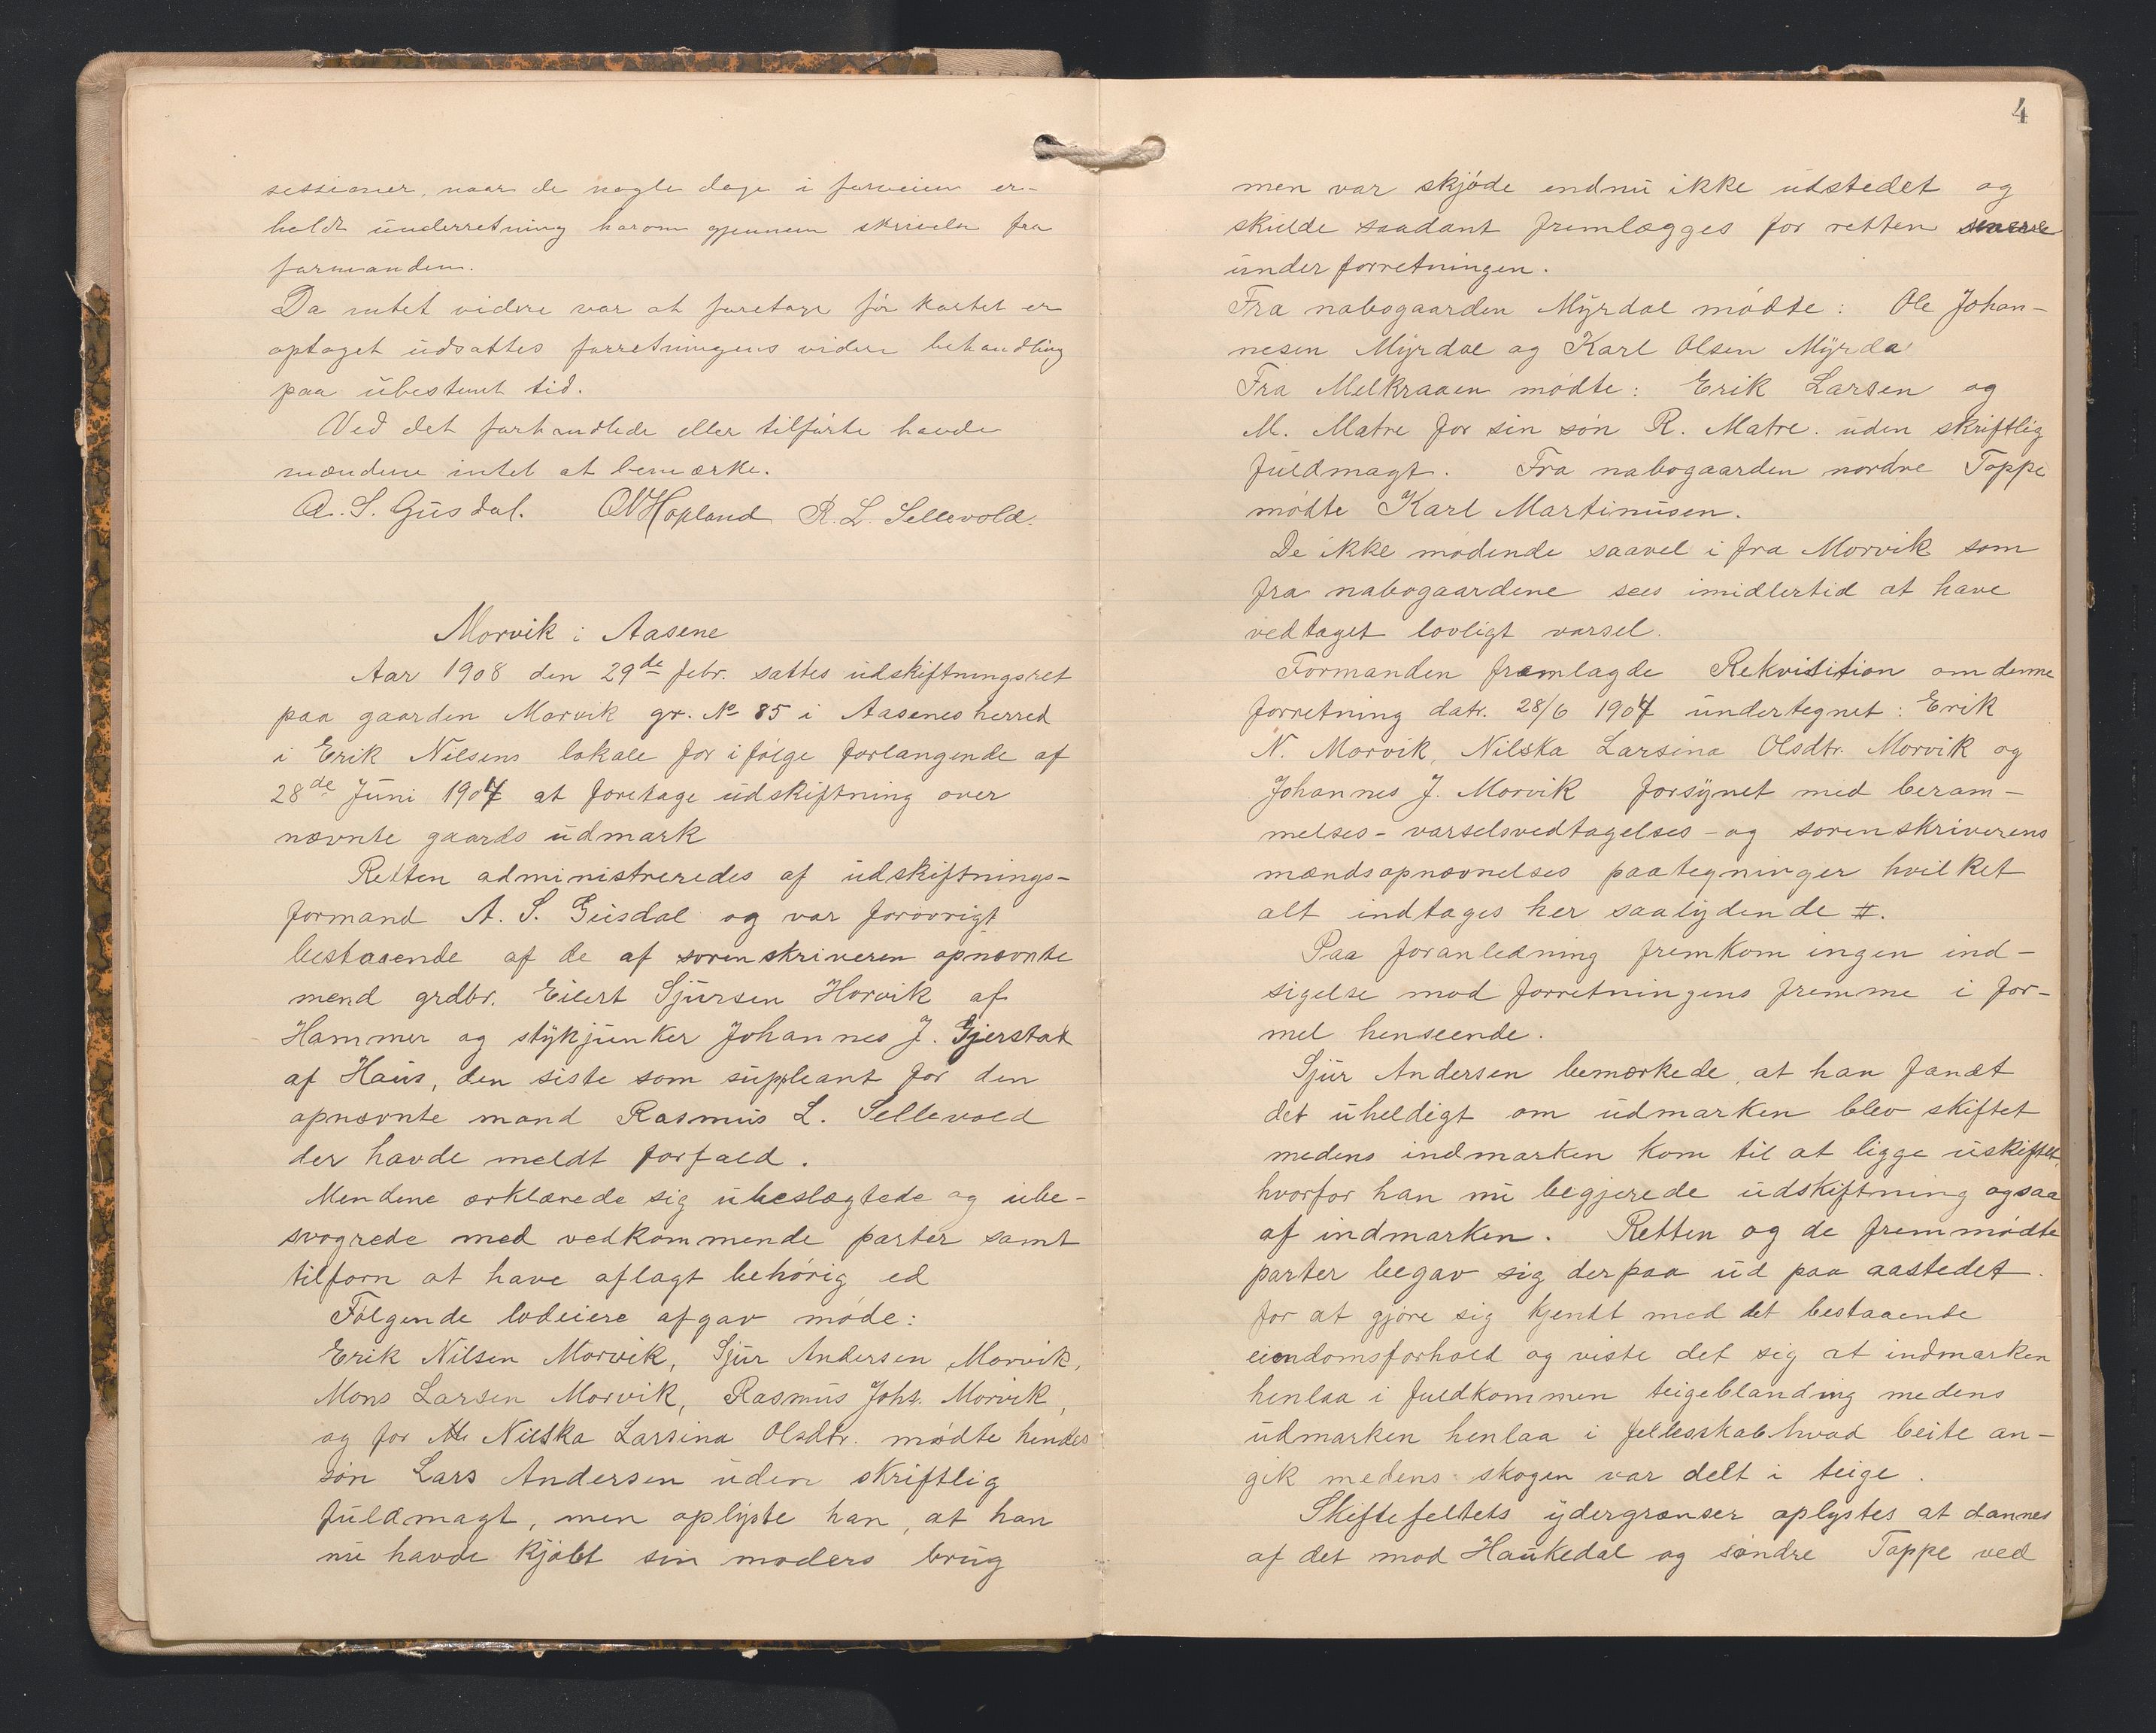 sessioner, naar de nogle dage i forveien er-
holdt underretning herom gjennem skrivelse fra
formanden.
Da intet videre var at foretage før kartet er
optaget udsattes forretningens videre behandling
paa ubestemt tid.
Ved det forhandlede eller tilførte havde
mændene intet at bemærke.
A. S. Gusdal. ON Hopland R. L. Sellevold.
Morvik i Aasene
Aar 1908 den 29de febr. sattes udskiftningsret
paa gaarden Morvik gr. No 85 i Aasenes herred
i Erik Nilsens lokale for ifølge forlangende af
28de Juni 1907 at foretage udskiftning over
nævnte gaards udmark
Retten administreredes af udskiftnings-
formand A. S. Gusdal og var forøvrigt
bestaaende af de af sorenskriveren opnævnte
mend grdbr. Eilert Sjursen Horvik af
Hammer og stykjunker Johannes J. Gjerstad
af Haus, den siste som suppleant for den
opnævnte mand Rasmus L. Sellevold
der havde meldt forfald.
Mendene erklærede sig ubeslægtede og ube-
svogrede med vedkommende parter samt
tilforn at have aflagt behørig ed
Følgende lodeiere afgav møde:
Erik Nilsen Morvik, Sjur Andersen Morvik,
Mons Larsen Morvik, Rasmus Johs. Morvik,
og for Nilska Larsina Olsdtr. mødte hendes
søn Lars Andersen uden skriftlig
fuldmagt, men oplyste han, at han
nu havde kjøbt sin moders brug
4
men var skjøde endnu ikke udstedet og
skulde saadant fremlægges for retten senere
under forretningen.
Fra nabogaarden Myrdal mødte: Ole Johan-
nesen Myrdal og Karl Olsen Myrda
Fra Melkraaen mødte: Erik Larsen og
M. Matre for sin søn R. Matre. uden skriftlig
fuldmagt. Fra nabogaarden nordre Toppe
mødte Karl Martinusen.
De ikke mødende saavel i fra Morvik som
fra nabogaardene sees imidlertid at have
vedtaget lovligt varsel.
Formanden fremlagde Rekvisition om denne
forretning datr. 28/6 1907 undertegnet: Erik
N. Morvik, Nilska Larsina Olsdtr. Morvik og
Johannes J. Morvik forsynet med beram-
melses- varselsvedtagelses- og sorenskriverens
mændsopnævnelses paategninger hvilket
alt indtages her saalydende #.
Paa foranledning fremkom ingen ind-
sigelse mod forretningens fremme i for-
mel henseende.
Sjur Andersen bemærkede, at han fandt
det uheldigt om udmarken blev skiftet
medens indmarken kom til at ligge uskiftet,
hvorfor han nu begjerede udskiftning ogsaa
af indmarken. Retten og de fremmødte
parter begav sig derpaa ud paa aastedet.
for at gjøre sig kjendt med det bestaaende
eiendomsforhold og viste det sig at indmarken
henlaa i fuldkommen teigeblanding medens
udmarken henlaa i fellesskab hvad beite an-
gik medens skogen var delt i teige.
Skiftefeltets ydergrænser oplystes at dannes
af det mod Haukedal og søndre Toppe ved